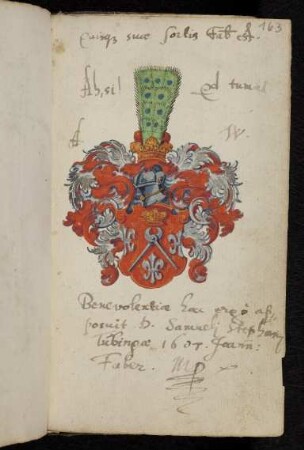 163
suae sortis Faber est.
Ah, si!
A. W.
Benevolentiae hoc ergò ap-
posuit D. Samueli Stephani
Tubingae 1607. Joann:
Faber. Mp